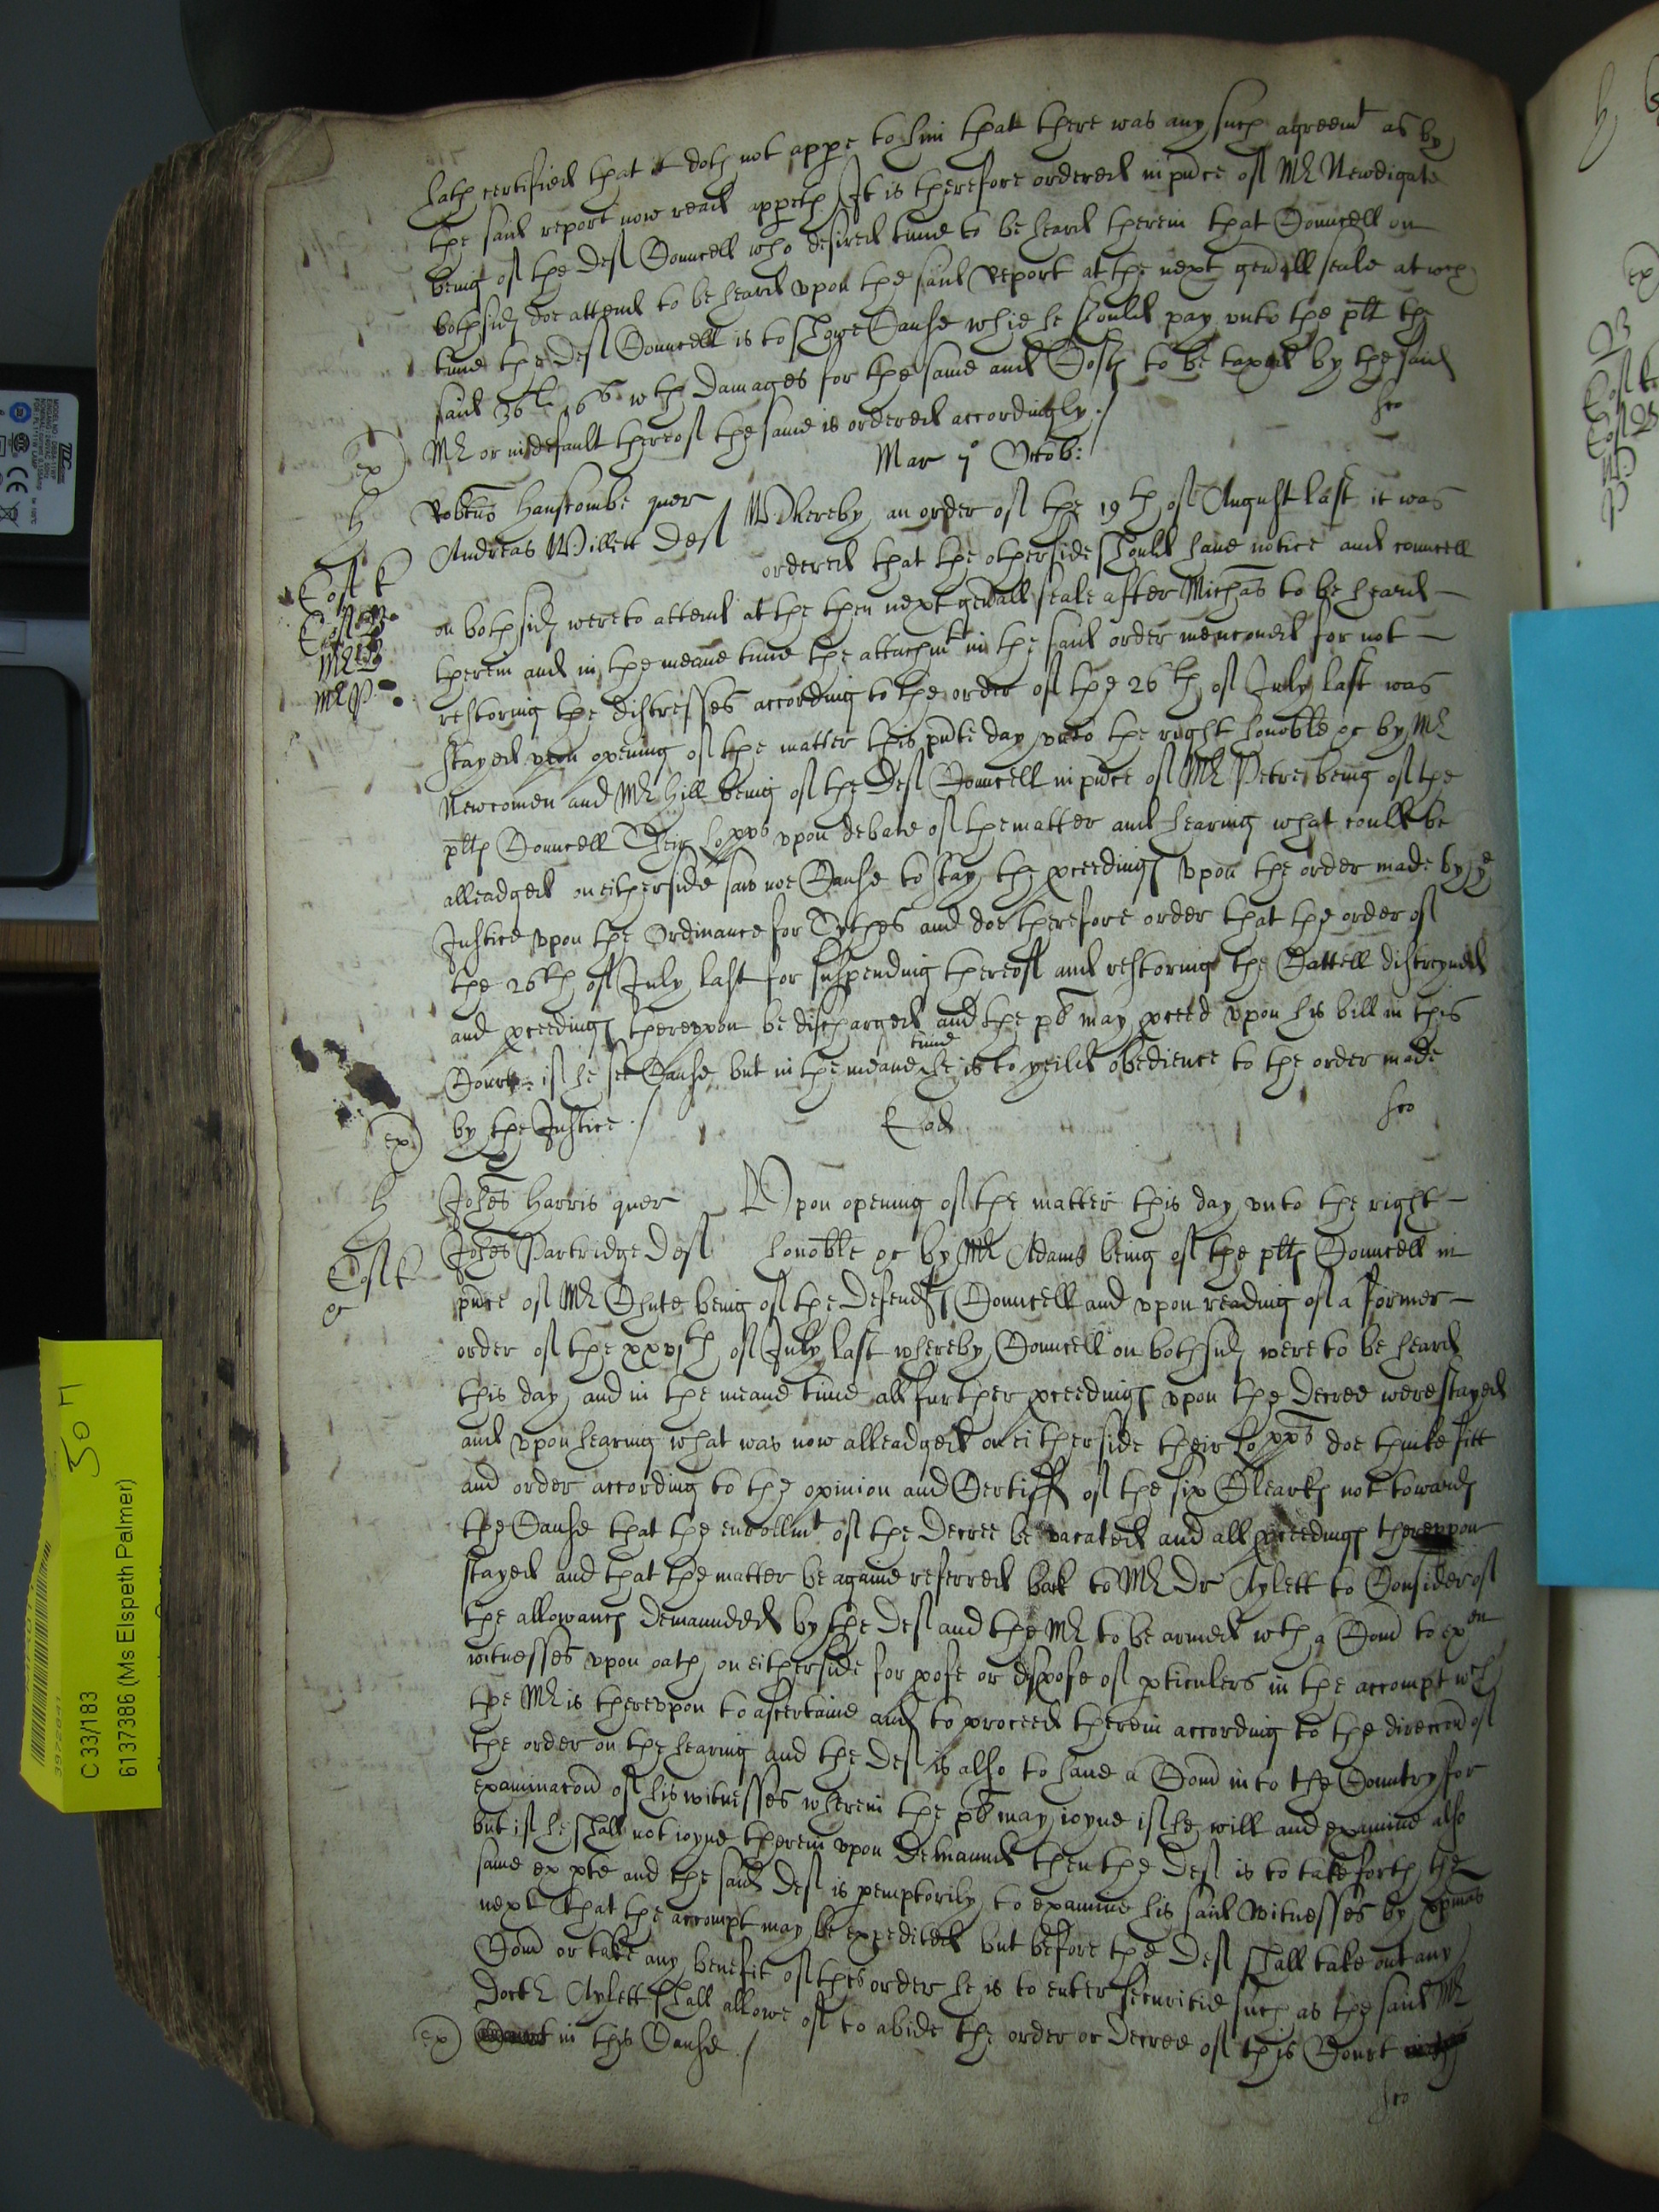 hath certified that it doth not appe to him that there was any such agreemt as by
the said report now read appeth It is therefore ordered in pnce of Mr Newdigate
being of the Def Councell who desired time to be heard therein that Councell on
both sids doe attend to be heard vpon the said Report at the next gen'all seale at wch
time the Def Councell is to shewe Cause whie he should pay vnto the plt the
said 36l 16s wth Damages for the same and Costs to be taxed by the said
Mr or in default thereof the same is ordered accordingly./
ex)
sco
Mar 7o Octob:
h
Robtus Hanscombe quer
Andreas Willett Def
Whereby an order of the 19th of August last it was
ordered that the otherside should have notice and councell
on both sids were to attend at the then next gen'all seale after Michas to be heard
therein and in the meane time the attachmt in the said order menconed for not
restoring the distresses according to the order of the 26th of July last was
stayed vpon opening of the matter this pnte day vnto the right honoble &c by Mr
Newcomen and Mr Hill being of the Def Councell in pnce of Mr Petre being of the
plts Councell Their Lopps vpon debate of the matter and hearing what could be
alleadged on either side saw noe Cause to stay the pceedings vpon the order made by ye
Justice vpon the Ordinance for Tythes and doe therefore order that the order of
the 26th of July last for suspending thereof and restoring the Cattell distreyned
and pceedings therevpon be discharged and the plt may pceed vpon his bill in this
Court if he see Cause but in the meane time he is to yeild obedience to the order made
by the Justice./
ex)
Eod
sco
h
Johes Harris quer
Johes Partridge Def
Vpon opening of the matter this day vnto the right
honoble &c by Mr Adams being of the plts Councell in
pnce of Mr Chute being of the Defendts Councell and vpon reading of a former
order of the xxvjth of July last whereby Councell on both sids were to be heard
this day and in the meane time all further pceedings vpon the Decree were stayed
and vpon hearing what was now alleadged on either side their Lopps doe thinke fitt
and order according to the opinion and Certiff of the six Clearks not towards
the Cause that the enrollmt of the Decree be vacated and all pceedings therevpon
stayed and that the matter be againe referred back to Mr Dr Aylett to Consider of
the allowancs demaunded by the Def and the Mr to be armed wth a Com to exen
witnesses vpon oath on either side for profe or disprofe of pticulers in the accompt wch
the Mr is therevpon to ascertaine and to proceed therein according to the direccon of
the order on the hearing and the Def is also to have a Com into the Country for
examinacon of his witnesses wherein the plt may ioyne if he will and examine also
but if he shall not ioyne therein vpon Demaund then the Def is to take forth the
same ex pte and the said Def is pemptorily to examine his said Witnesses by xpmas
next that the accompt may be expedited but before the Def shall take out any
Com or take any benefit of this order he is to enter securitie such as the said Mr
Doctr Aylett shall allowe of to abide the order or Decree of this Court
in this Cause./
ex)
sco
307
C 33/183
6137386 (Ms Elspeth Palmer)